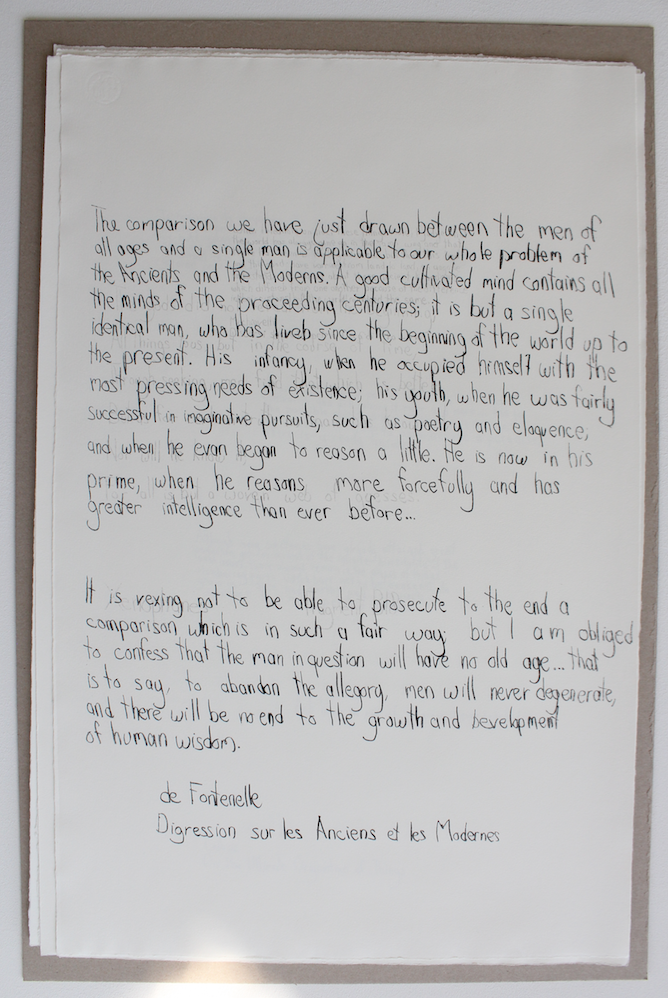 The comparison we have just drawn between the men of
all ages and a single man is applicable to our whole problem of
the Ancients and the Moderns. A good cultivated mind contains all
the minds of the proceeding centuries; it is but a single
identical man, who has liveb since the beginning of the world up to
the present. His infancy, when he occupied himself with the
most pressing needs of existence; his youth, when he was fairly
successful in imaginative pursuits, such as poetry and eloquence,
and when he evan began to reason a little. He is now in his
prime, when he reasons more forcefully and has
greater intelligence than ever before...
It is vexing not to be able to prosecute to the end a
comparison which is in such a fair way; but I am obliged
to confess that the man in question will have no old age... that
is to say, to abandon the allegory, men will never degenerate,
and there will be no end to the growth and bevelopment
of human wisdom.
de Fontenelle
Digression sur les Anciens et les Modernes